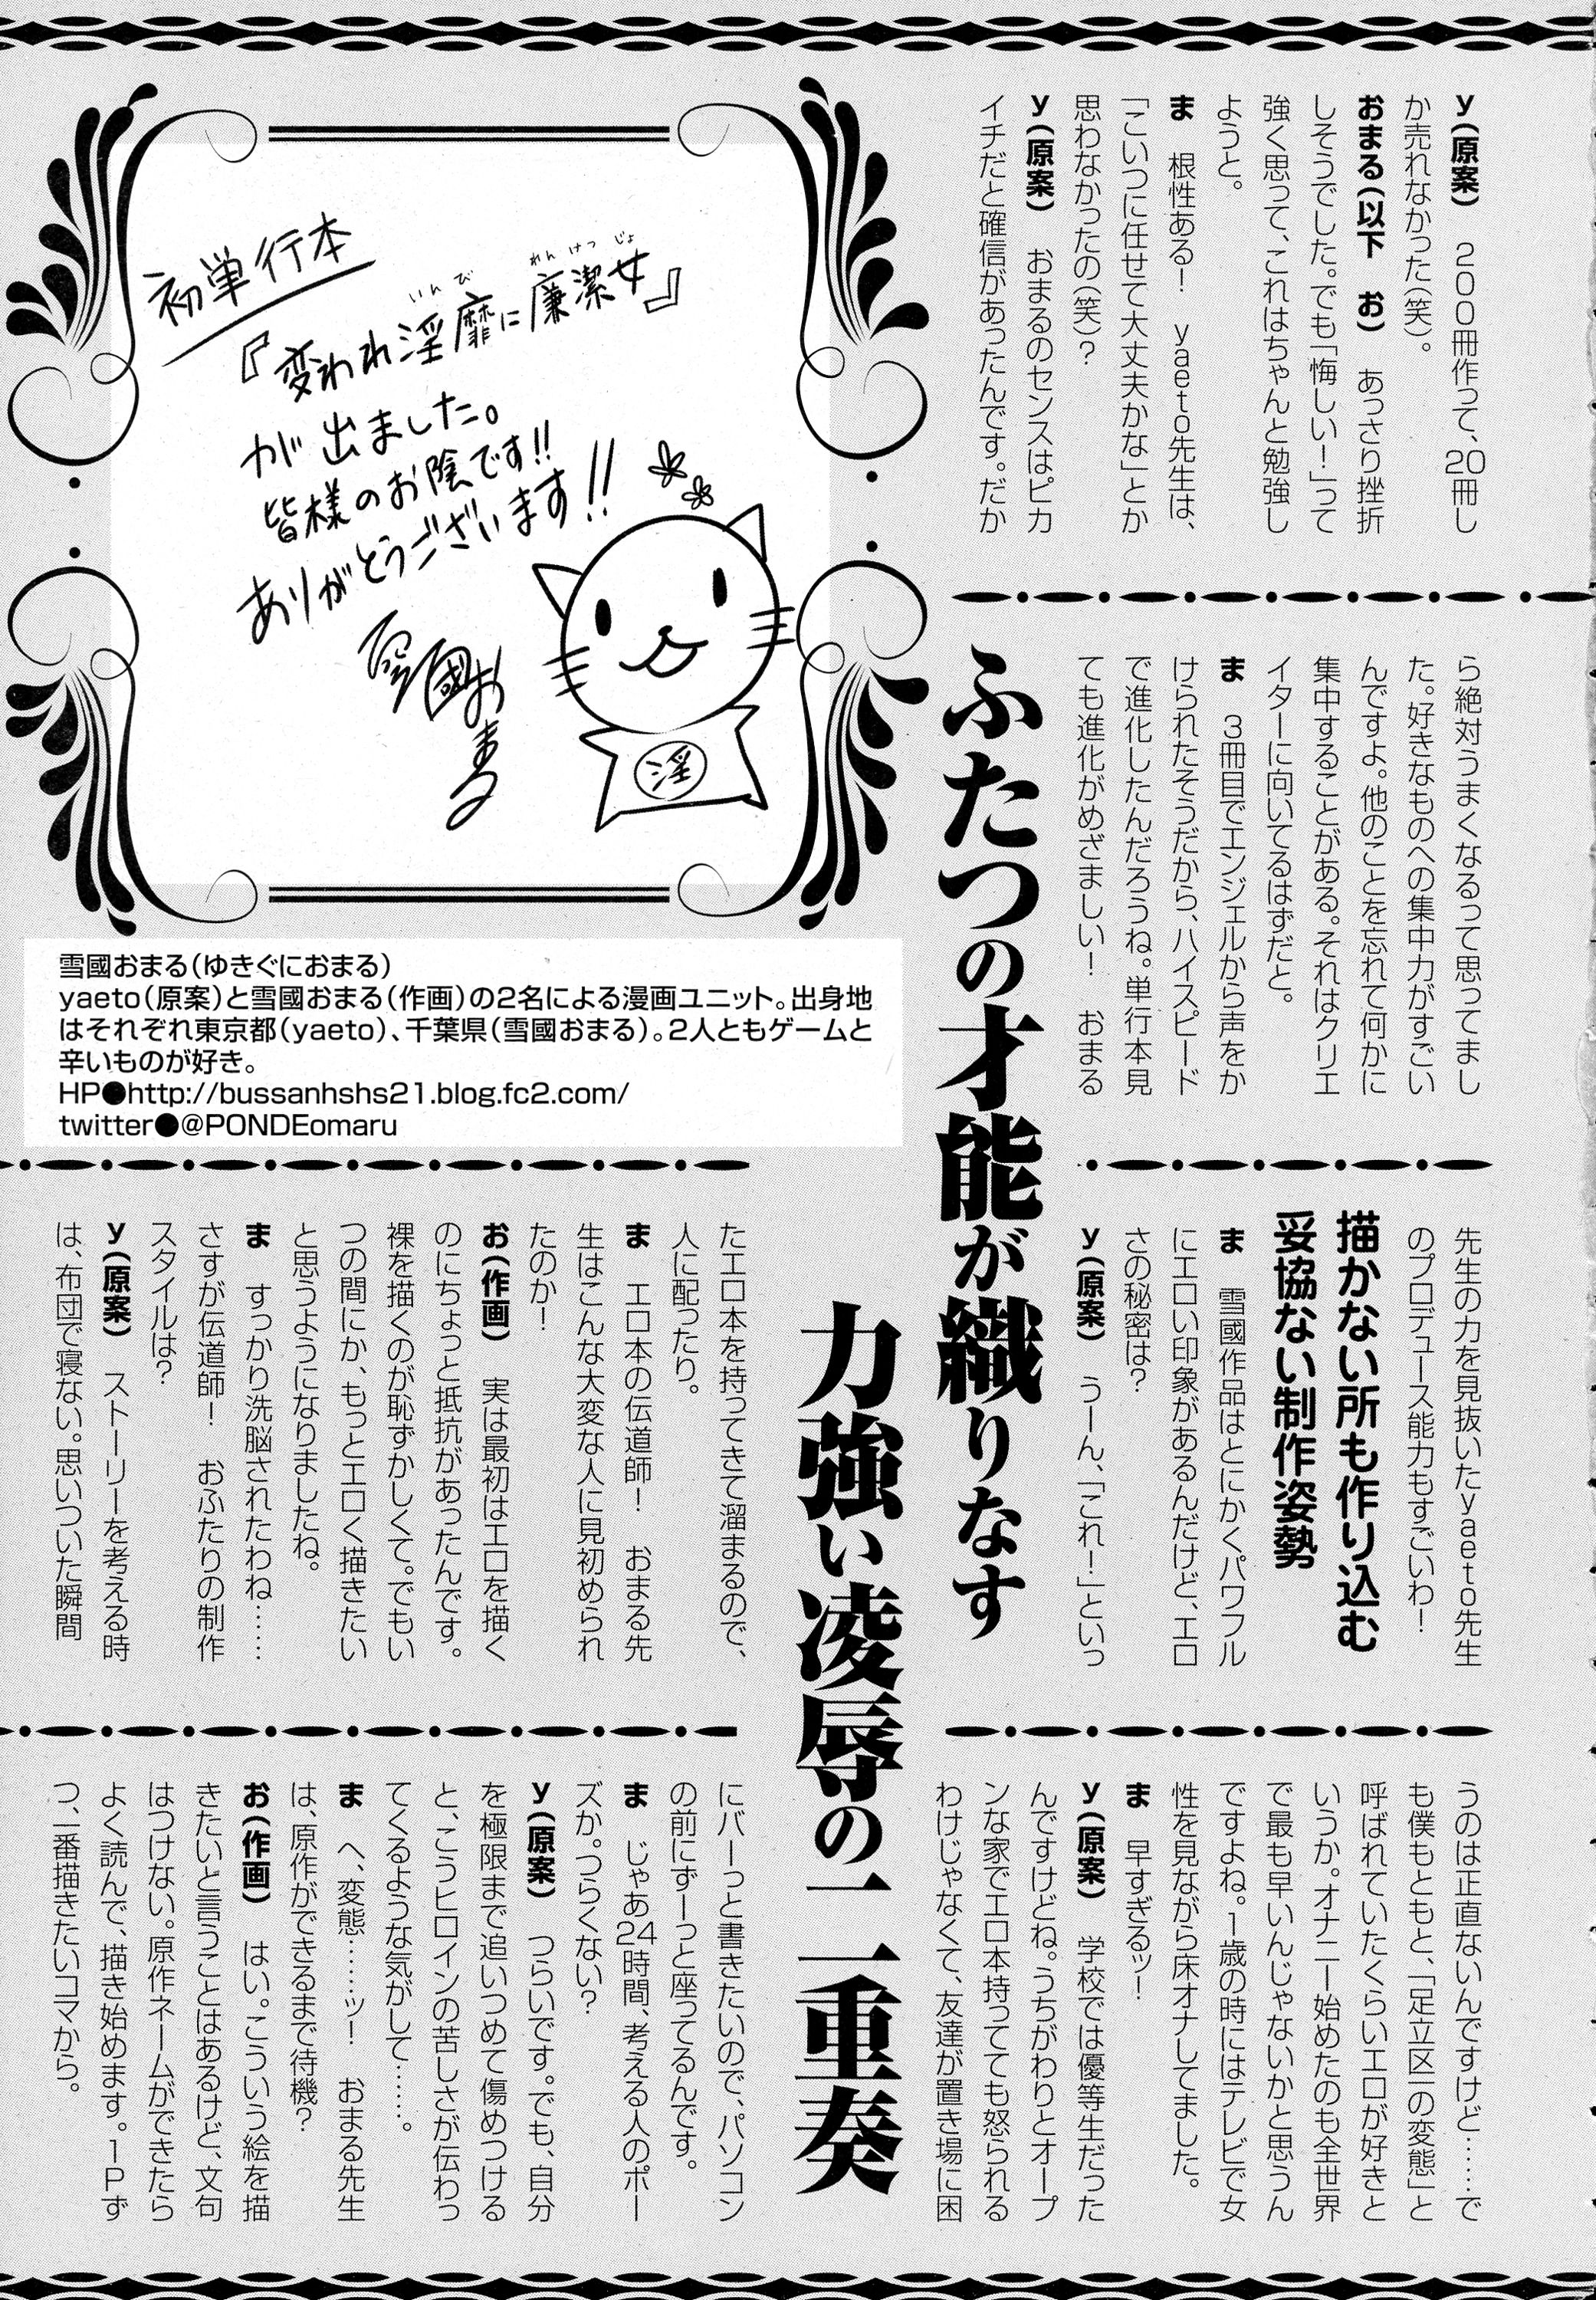 y（原案）　200冊作って、20冊し
か売れなかった（笑）。
おまる（以下　お）　あっさり挫折
しそうでした。でも「悔しい！」って
強く思って、これはちゃんと勉強し
ようと。
ま　根性ある！　yaeto先生は、
「こいつに任せて大丈夫かな」とか
思わなかったの（笑）？
y（原案）　おまるのセンスはピカ
イチだと確信があったんです。だか
ら絶対うまくなるって思ってまし
た。好きなものへの集中力がすごい
んですよ。他のことを忘れて何かに
集中することがある。それはクリエ
イターに向いてるはずだと。
ま　3冊目でエンジェルから声をか
けられたそうだから、ハイスピード
で進化したんだろうね。単行本見
ても進化がめざましい！　おまる
先生の力を見抜いたyaeto先生
のプロデュース能力もすごいわ！
描かない所も作り込む
妥協ない制作姿勢
ま　雪國作品はとにかくパワフル
にエロい印象があるんだけど、エロ
さの秘密は？
y（原案）　うーん、「これ！」といっ
うのは正直ないんですけど……で
も僕もともと、「足立区一の変態」と
呼ばれていたくらいエロが好きと
いうか。オナニー始めたのも全世界
で最も早いんじゃないかと思うん
ですよね。1歳の時にはテレビで女
性を見ながら床オナしてました。
ま　早すぎるッ！
y（原案）　学校では優等生だった
んですけどね。うちがわりとオープ
ンな家でエロ本持ってても怒られる
わけじゃなくて、友達が置き場に困
ふたつの才能が織りなす
力強い凌辱の二重奏
初単行本
『変われ淫靡に廉潔女』
いんび
れんけつじょ
が出ました。
皆様のお陰です!!
ありがとうございます!!
雪國おまる
淫
雪國おまる（ゆきぐにおまる）
yaeto（原案）と雪國おまる（作画）の2名による漫画ユニット。出身地
はそれぞれ東京都（yaeto）、千葉県（雪國おまる）。2人ともゲームと
辛いものが好き。
HP●http://bussanhshs21.blog.fc2.com/
twitter●@PONDEomaru
たエロ本を持ってきて溜まるので、
人に配ったり。
ま　エロ本の伝道師！　おまる先
生はこんな大変な人に見初められ
たのか！
お（作画）　実は最初はエロを描く
のにちょっと抵抗があったんです。
裸を描くのが恥ずかしくて。でもい
つの間にか、もっとエロく描きたい
と思うようになりましたね。
ま　すっかり洗脳されたわね……
さすが伝道師！　おふたりの制作
スタイルは？
y（原案）　ストーリーを考える時
は、布団で寝ない。思いついた瞬間
にバーっと書きたいので、パソコン
の前にずーっと座ってるんです。
ま　じゃあ24時間、考える人のポー
ズか。つらくない？
y（原案）　つらいです。でも、自分
を極限まで追いつめて傷めつける
と、こうヒロインの苦しさが伝わっ
てくるような気がして……。
ま　へ、変態……ッ！　おまる先生
は、原作ができるまで待機？
お（作画）　はい。こういう絵を描
きたいと言うことはあるけど、文句
はつけない。原作ネームができたら
よく読んで、描き始めます。1Pず
つ、一番描きたいコマから。